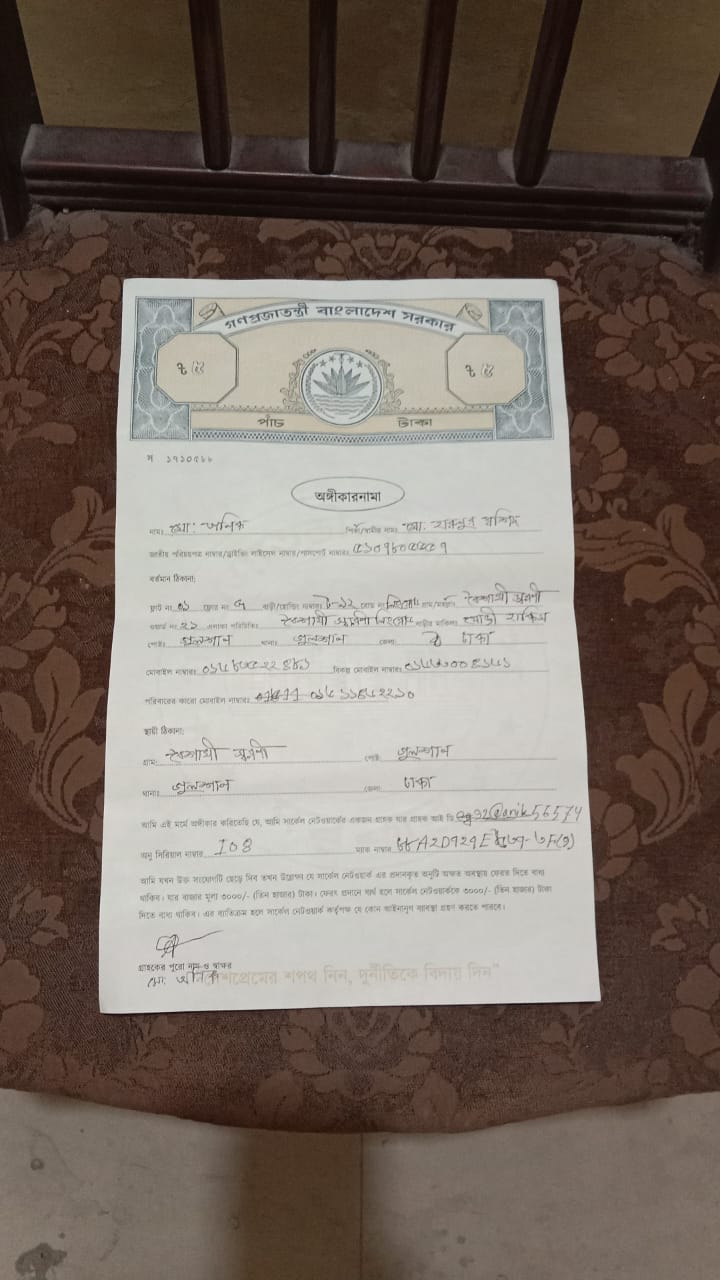 গণপ্রজাতন্ত্রী বাংলাদেশ সরকার
৳ ৫ ৳ ৫
পাঁচ টাকা
স ১৭১০৫৮৮
অঙ্গীকারনামা
নাম: মো: অনিক পিতা/স্বামীর নাম: মো: হারুনুর রশিদ
জাতীয় পরিচয়পত্র নাম্বার/ড্রাইভিং লাইসেন্স নাম্বার/পাসপোর্ট নাম্বার:
বর্তমান ঠিকানা:
ফ্লাট নং ফ্লোর নং বাড়ী/হোল্ডিং নাম্বার: রোড নং গ্রাম/মহল্লা: বৈশাখী স্বরণী
ওয়ার্ড নং ২১ এলাকা পরিচিতি: বৈশাখী স্বরণী বাড়ীর মালিক:
পোষ্ট: গুলশান থানা: গুলশান জেলা: ঢাকা
মোবাইল নাম্বার: বিকল্প মোবাইল নাম্বার:
পরিবারের কারো মোবাইল নাম্বার:
স্থায়ী ঠিকানা:
গ্রাম: বৈশাখী স্বরণী পোষ্ট: গুলশান
থানা: গুলশান জেলা: ঢাকা
আমি এই মর্মে অঙ্গীকার করিতেছি যে, আমি সার্কেল নেটওয়ার্কের একজন গ্রাহক যার গ্রাহক আই ডি
অনু সিরিয়াল নাম্বার 108 ম্যাক নাম্বার
আমি যখন উক্ত সংযোগটি ছেড়ে দিব তখন উল্লেখ্য যে সার্কেল নেটওয়ার্ক এর প্রদানকৃত অনুটি অক্ষত অবস্থায় ফেরত দিতে বাধ্য
থাকিব। যার বাজার মূল্য ৩০০০/- (তিন হাজার) টাকা। ফেরৎ প্রদানে ব্যর্থ হলে সার্কেল নেটওয়ার্ককে ৩০০০/- (তিন হাজার) টাকা
দিতে বাধ্য থাকিব। এর ব্যতিক্রম হলে সার্কেল নেটওয়ার্ক কর্তৃপক্ষ যে কোন আইনানুগ ব্যবস্থা গ্রহণ করতে পারবে।
গ্রাহকের পুরো নাম ও স্বাক্ষর
মো: অনিক
"দেশপ্রেমের শপথ নিন, দুর্নীতিকে বিদায় দিন"